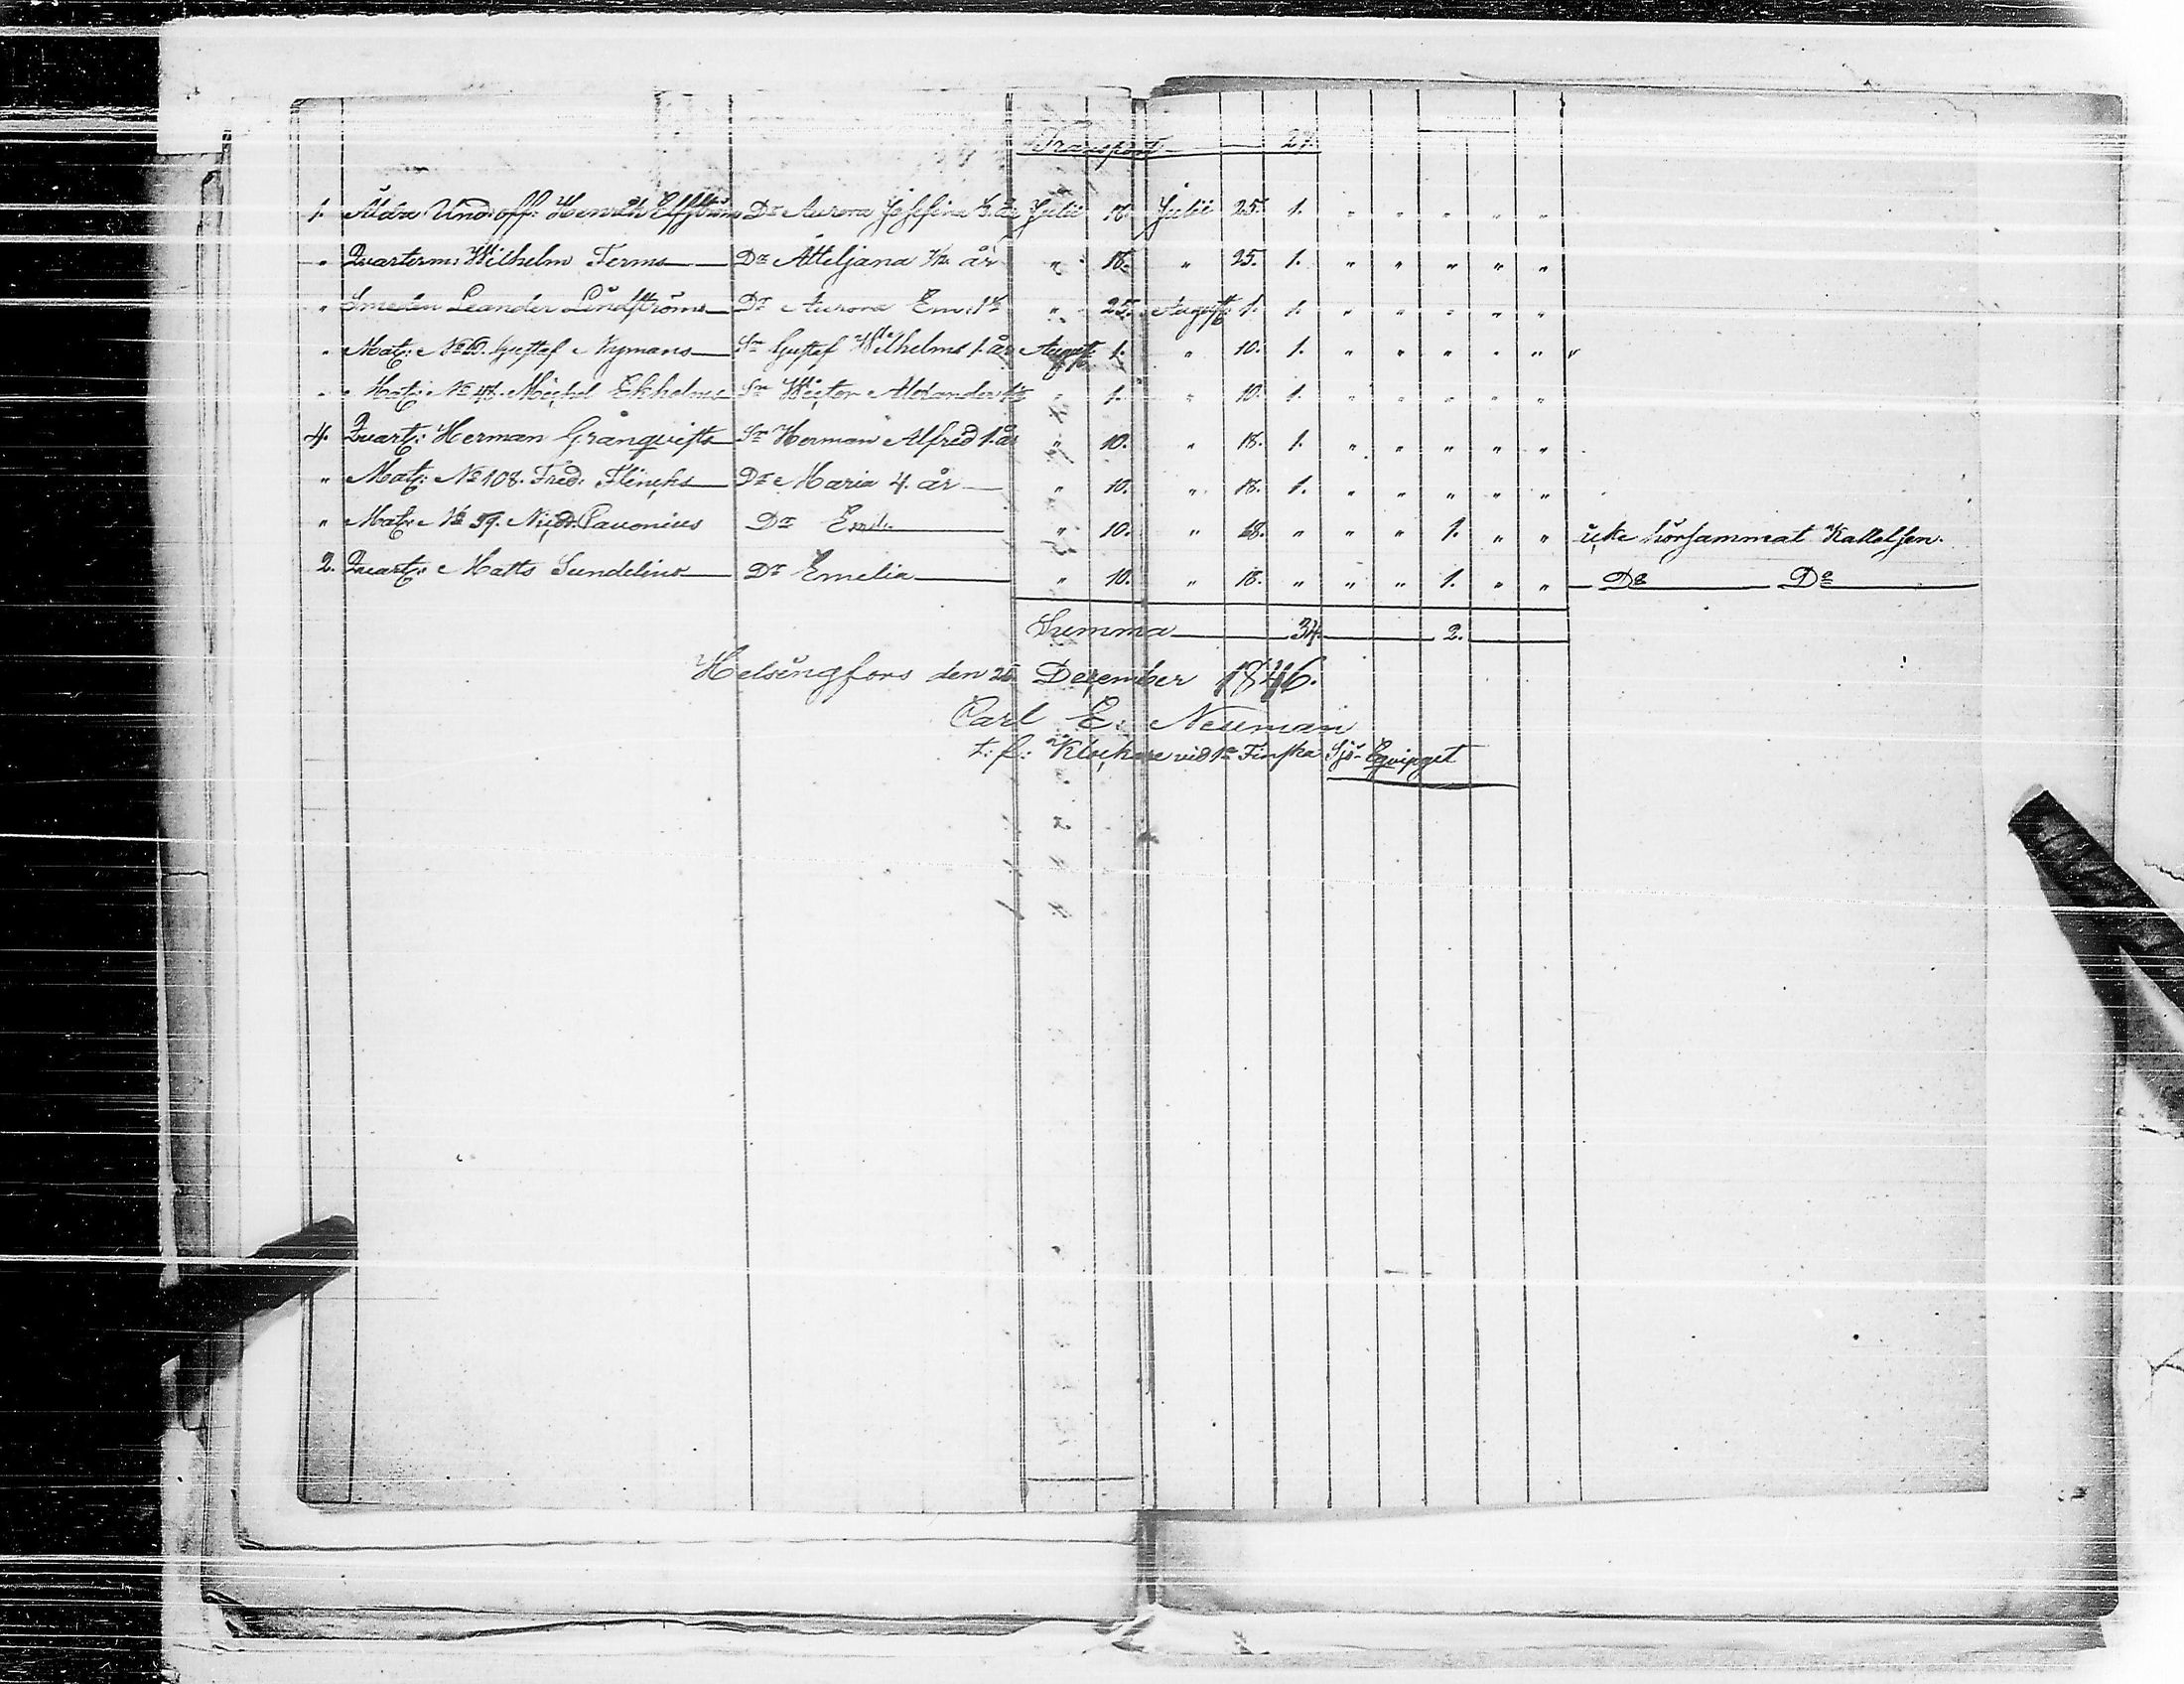 Transport 27.
1. Äldra Und: off: Henrik Elfström Dr Aurora Josefina ½ år Julii 18. Julii 25. 1. " " " " "
" Qvarterm: Wilhelm Ferms Dr Atteljana ½ år " 18. " 25. 1. " " " " "
" Smeden Leander Lindströms Dr Aurora Em: 1 " 25. August: 1. 1. " " " " "
" Mat: No Gustaf Nymans Sn Gustaf Wilhelms 1. år August: 1. " 10. 1. " " " " "
" Mat: No 46. Michel Ekholms Sn Wictor Alexander " 1. " 10. 1. " " " " "
4. Qvart: Herman Granqvists Sn Herman Alfred 1. år " 10. " 18. 1. " " " " "
" Mat: No 108. Fred. Flincks Dr Maria 4. år " 10. " 18. 1. " " " " "
" Mat: No 59. Pauonius Dr " 10. " 18. " " " 1. " " icke hörsammat Kallelsen.
2. Qvart: Matts Sundelius Dr Emelia " 10. " 18. " " " 1. " " Do Do
Summa 34. 2.
Helsingfors den December 1846.
Carl E. Neuman
t. f. Klockare vid 1a Finska Sjö-Eqvipget